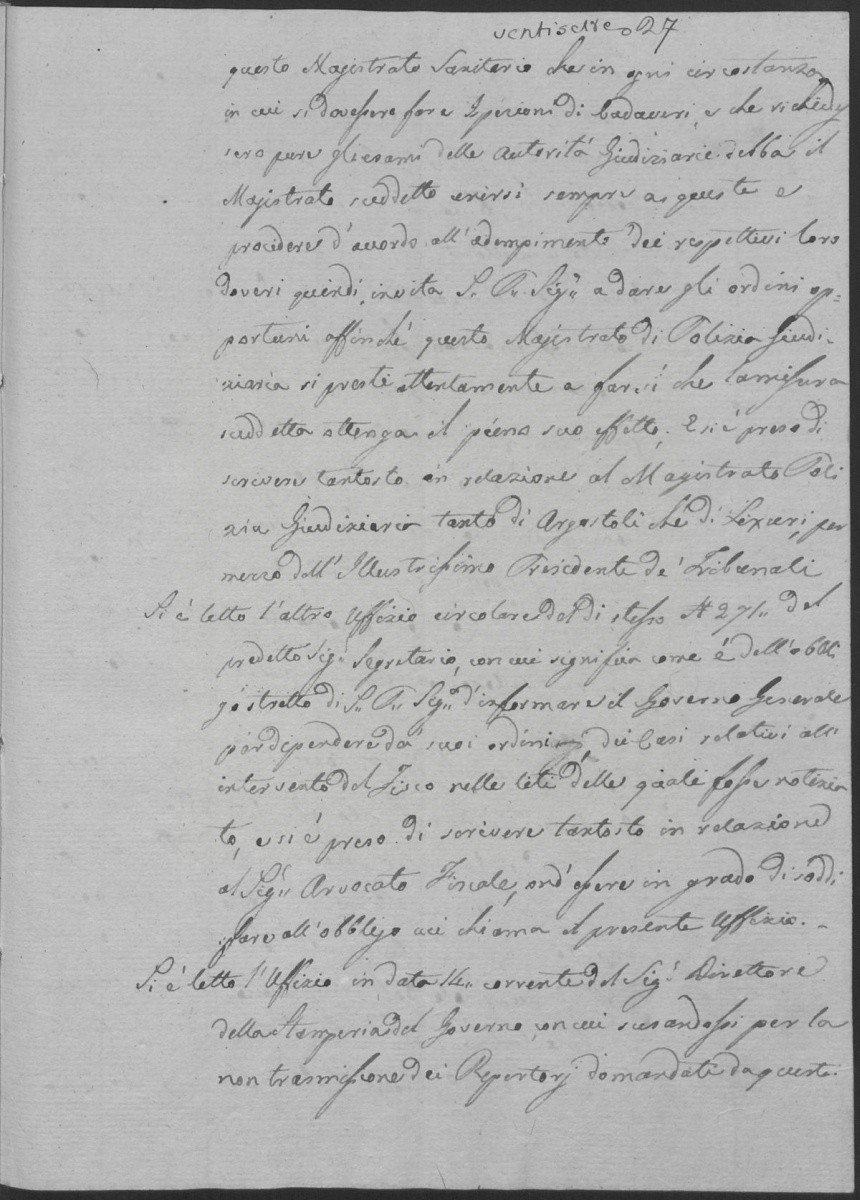 ventisette 27
questo Magistrato Sanitario che in ogni circostanza
in cui si dovessero fare Ispezioni di Cadaveri, e che richiedes
sero pure gli esami delle Autorità Giudiziarie debba il
Magistrato suddetto unirsi sempre a queste e
procedere d'accordo all'adempimento dei respettivi loro
doveri quindi invita S. P. Sig.ª a dare gli ordini op=
portuni affinché questo Magistrato di Polizia Giudi-
ziaria si presti attentamente a far sì che la misura
suddetta ottenga il pieno suo effetto; E si è preso di
scrivere tantosto in relazione al Magistrato Poli
zia Giudiziaria tanto di Argostoli che di Lixuri, per
mezzo dell'Illustrissimo Presidente de' Tribunali
Si è letto l'altro Uffizio circolare del dì stesso N 271.. del
predetto Sig.r Segretario, con cui significa come è dell'obbli
go stretto di S. P. Sig.ª d'informare il Governo Generale
per dipendere da' suoi ordini, dei Casi relativi all'
intervento del Fisco nelle liti delle quali fosse notizia
to, e si è preso di scrivere tantosto in relazione
al Sig.r Avvocato Fiscale, ond'essere in grado di soddi
sfare all'obbligo cui chiama il presente Uffizio. -
Si è letto l'Uffizio in data 14.. corrente del Sig.r Direttore
della Stamperia del Governo, con cui scusandosi per la
non trasmissione dei Repertorj domandati da questo